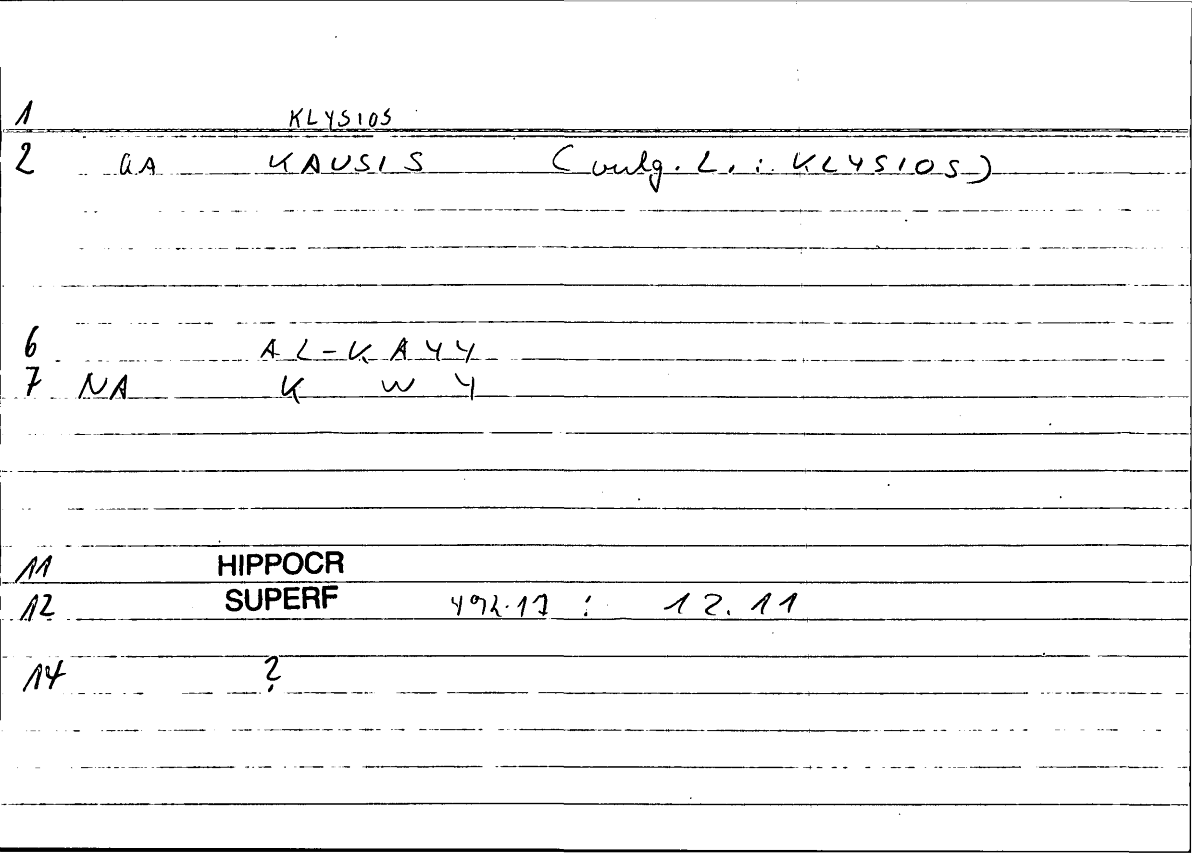 1 KLYSIOS
2 GA KAUSIS (vulg. L. : KLYSIOS)
6 AL-KAYY
7 NA K W Y
11 HIPPOCR
12 SUPERF 492.17 : 12.11
14 ?